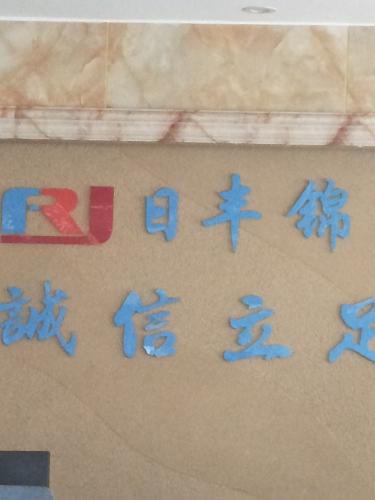 FRJ 日丰锦
誠信立足